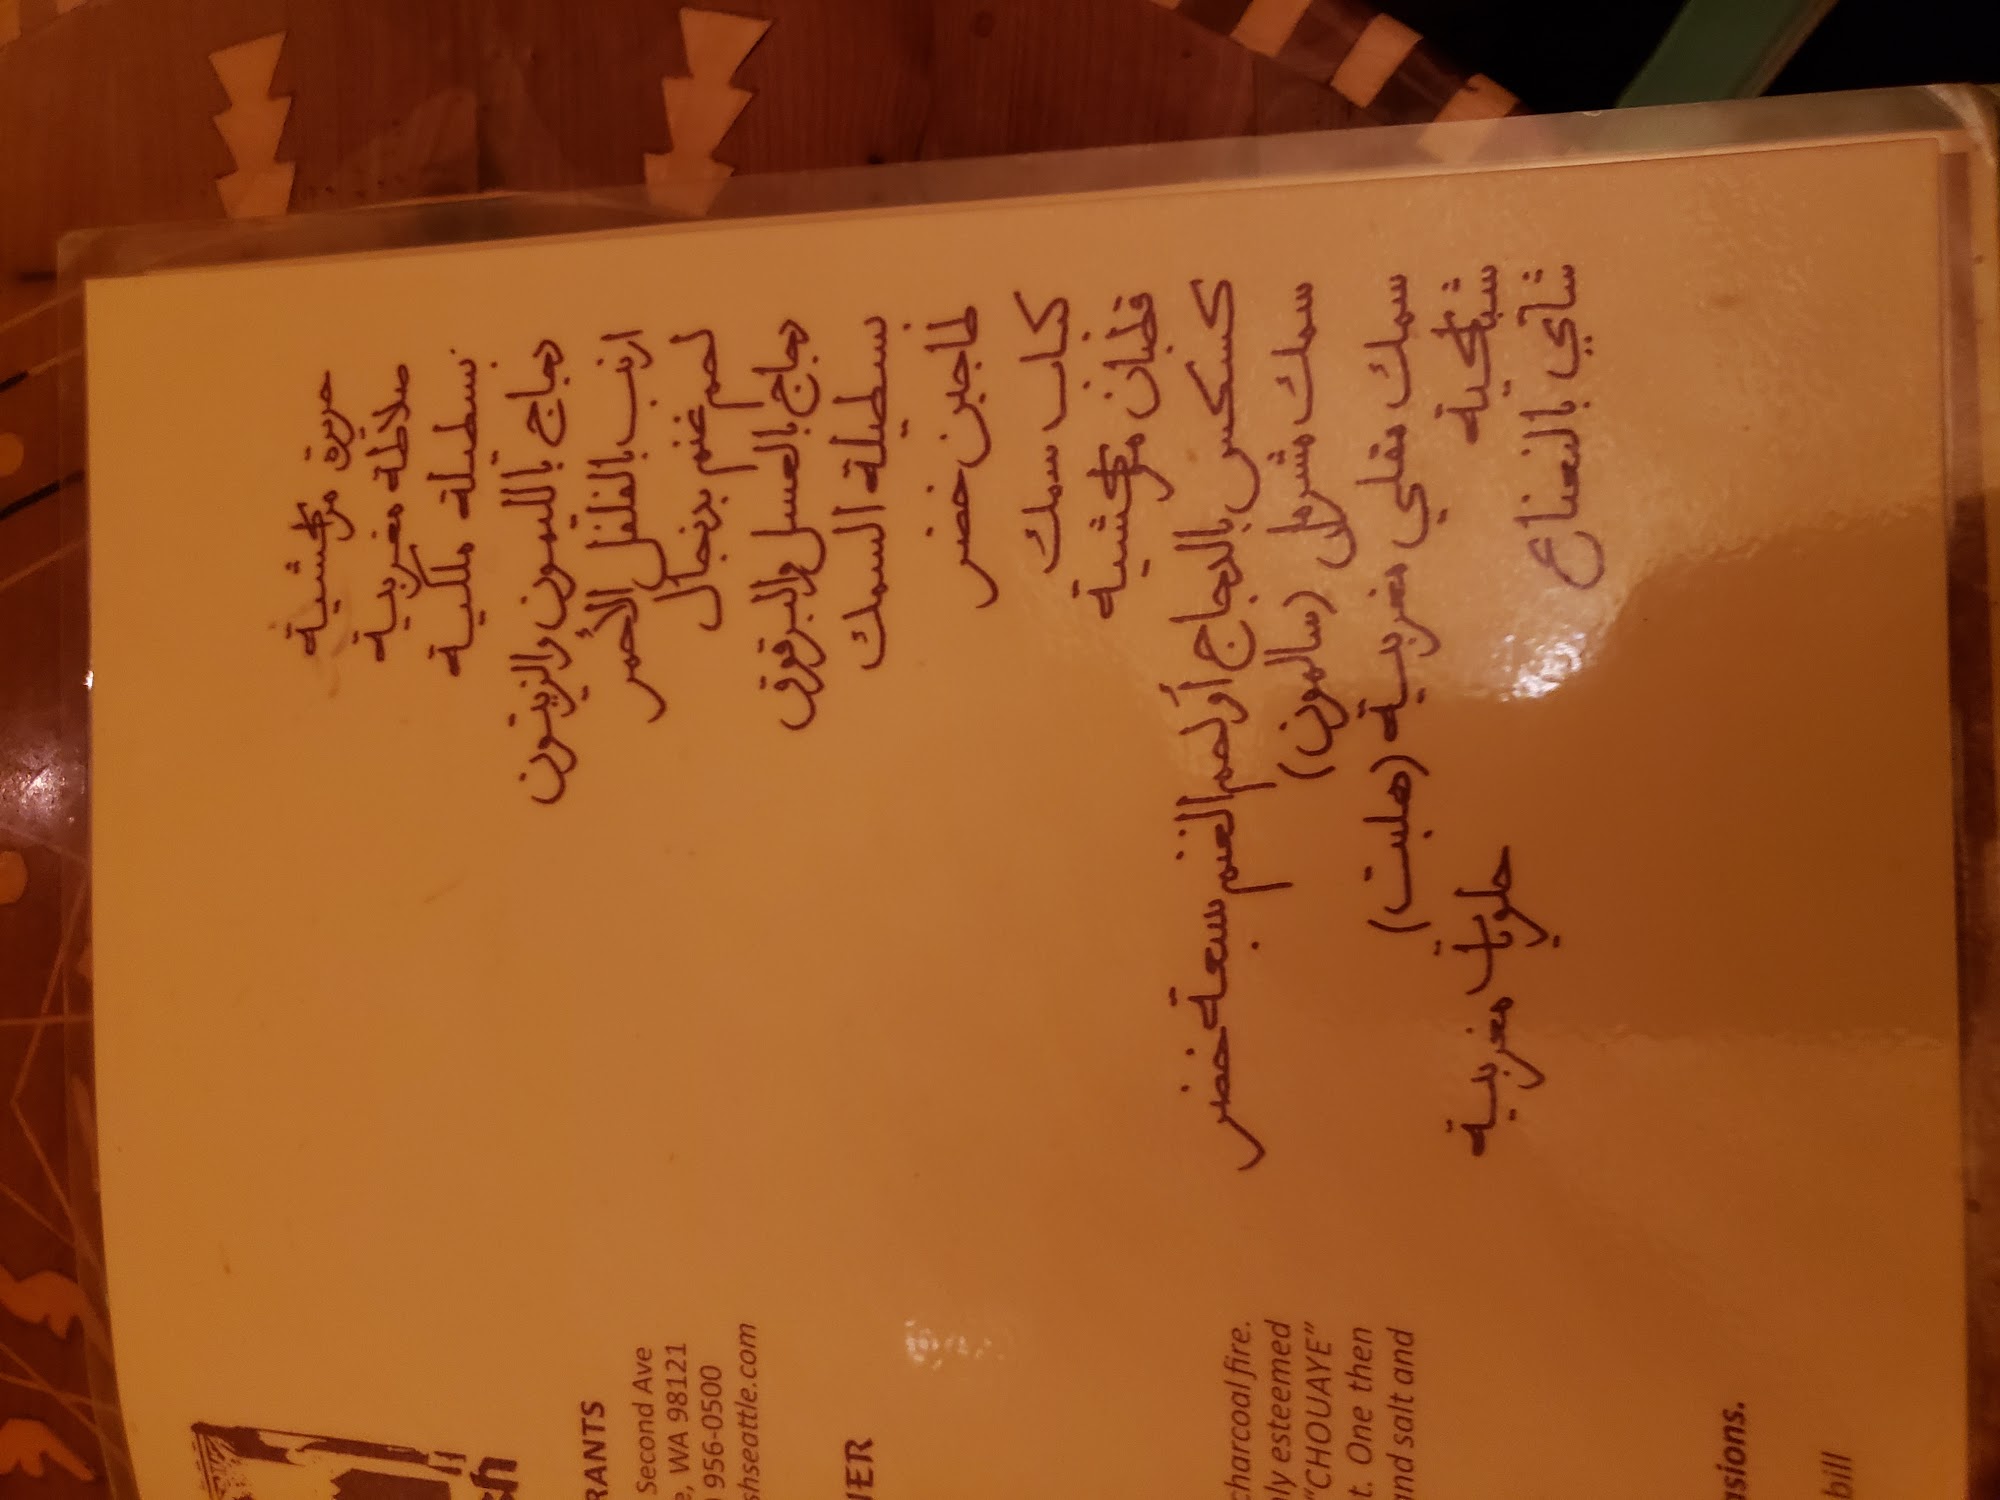 حريرة مركشية
صلاطة مغربية
بسطيلة ملكية
دجاج بالليمون والزيتون
ارنب بالفلفل الأحمر
لحم غنم بدنجال
دجاج بالعسل والبرقوق
بسطيلة السمك
طاجين خضر
كباب سمك
قطبان مركشية
كسكس بالدجاج أو لحم الغنم سبعة خضر
سمك مشرمل (سالمون)
سمك مقلي مغربية (هلبت)
شبكية
حلويات مغربية
شاي بالنعناع
RANTS
Second Ave
, WA 98121
956-0500
shseattle.com
IER
charcoal fire.
ly esteemed
"CHOUAYE"
t. One then
and salt and
asions.
bill